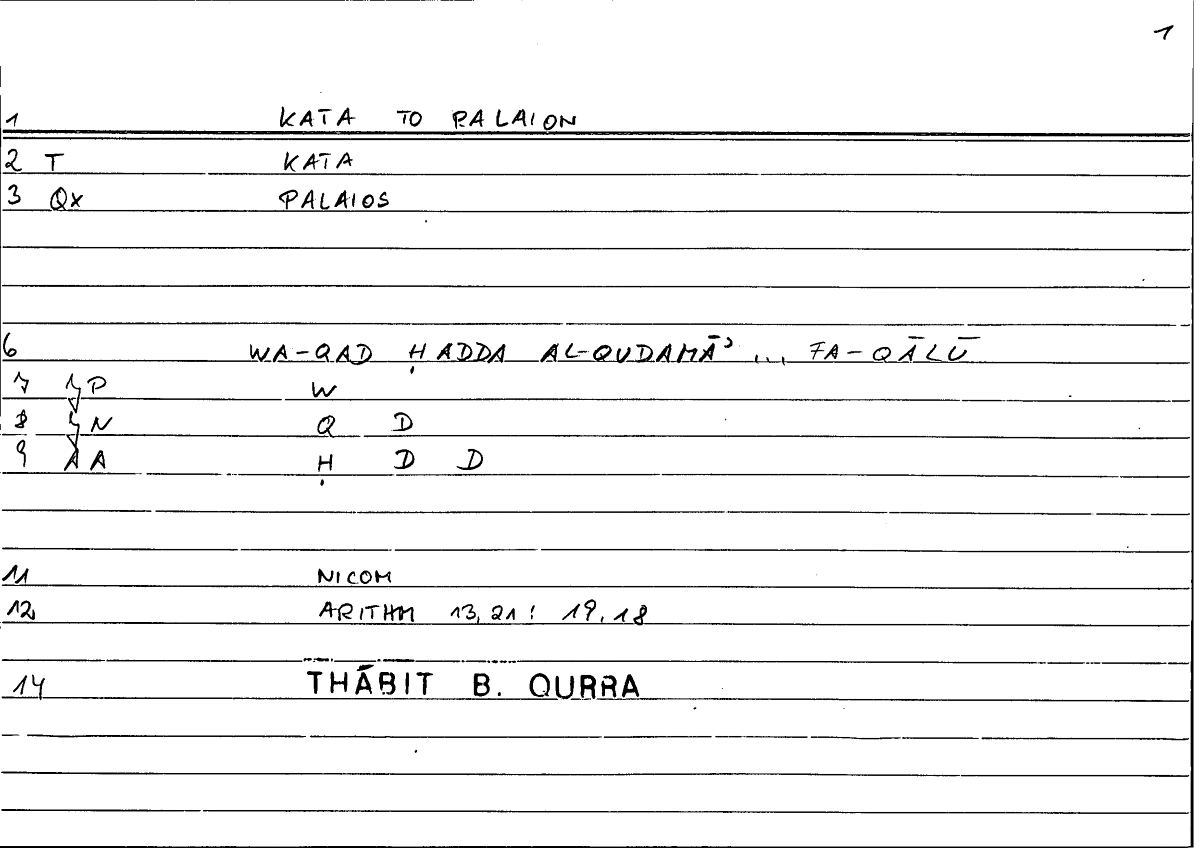 1
1 KATA TO PALAION
2 T KATA
3 Qx PALAIOS
6 WA-QAD ḤADDA AL-QUDAMĀʾ ... FA-QĀLŪ
7 P W
8 N Q D
9 A Ḥ D D
11 NICOM
12 ARITHM 13,21 : 19.18
14 THĀBIT B. QURRA